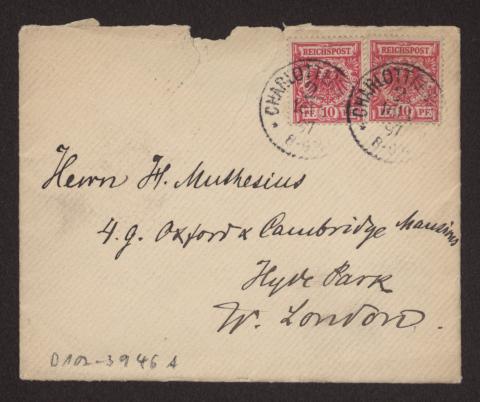 REICHSPOST REICHSPOST
PF 10 PF 10 PF
* CHARLOTTEN
2
97
8-9
* CHARLOTTEN
2
97
8-9
Herrn H. Muthesius
4.g. Oxford & Cambridge Mansions
Hyde Park
W. London.
D102-3946 A